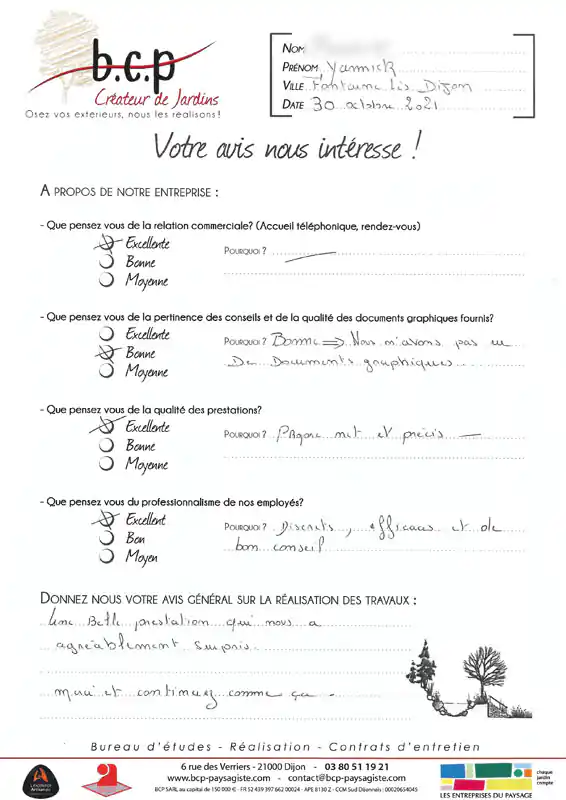 b.c.p
Créateur de Jardins
Osez vos extérieurs, nous les réalisons !
NOM
PRÉNOM Yannick
VILLE Fontaine lès Dijon
DATE 30 octobre 2021
Votre avis nous intéresse !
A PROPOS DE NOTRE ENTREPRISE :
- Que pensez vous de la relation commerciale? (Accueil téléphonique, rendez-vous)
Excellente
POURQUOI ?
Bonne
Moyenne
- Que pensez vous de la pertinence des conseils et de la qualité des documents graphiques fournis?
Excellente
Bonne
POURQUOI ? Bonne => Nous n'avons pas eu
Moyenne
De Documents graphiques
- Que pensez vous de la qualité des prestations?
Excellente
POURQUOI ? Propre net et précis
Bonne
Moyenne
- Que pensez vous du professionnalisme de nos employés?
Excellent
POURQUOI ? Discrets, efficaces et de
Bon
bon conseil
Moyen
DONNEZ NOUS VOTRE AVIS GÉNÉRAL SUR LA RÉALISATION DES TRAVAUX :
Une Belle prestation qui nous a
agréablement surpris.
merci et continuez comme ça
Bureau d'études - Réalisation - Contrats d'entretien
6 rue des Verriers - 21000 Dijon - 03 80 51 19 21
www.bcp-paysagiste.com - contact@bcp-paysagiste.com
BCP SARL au capital de 150 000 € - FR 52 439 397 662 00024 - APE 8130 Z - CCM Sud Dijonnais : 00020654045
LES ENTREPRISES DU PAYSAGE
chaque
jardin
compte